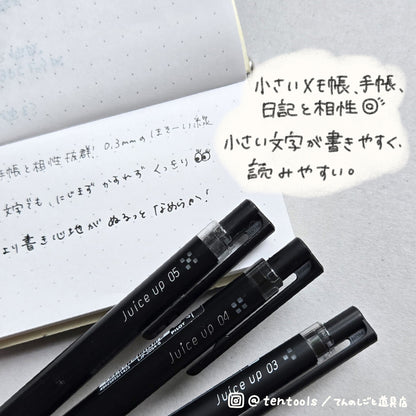 小さいメモ帳、手帳、
日記と相性◎
小さい文字が書きやすく、
読みやすい。
手帳と相性抜群! 0.3mmのほそーい線
文字でも、にじまず かすれず くっきり
より書き心地が ぬるっと「なめらか」!
Juice up 05
Juice up 04
PILOT
Juice up 03
@tentools / てんのしごと道具店